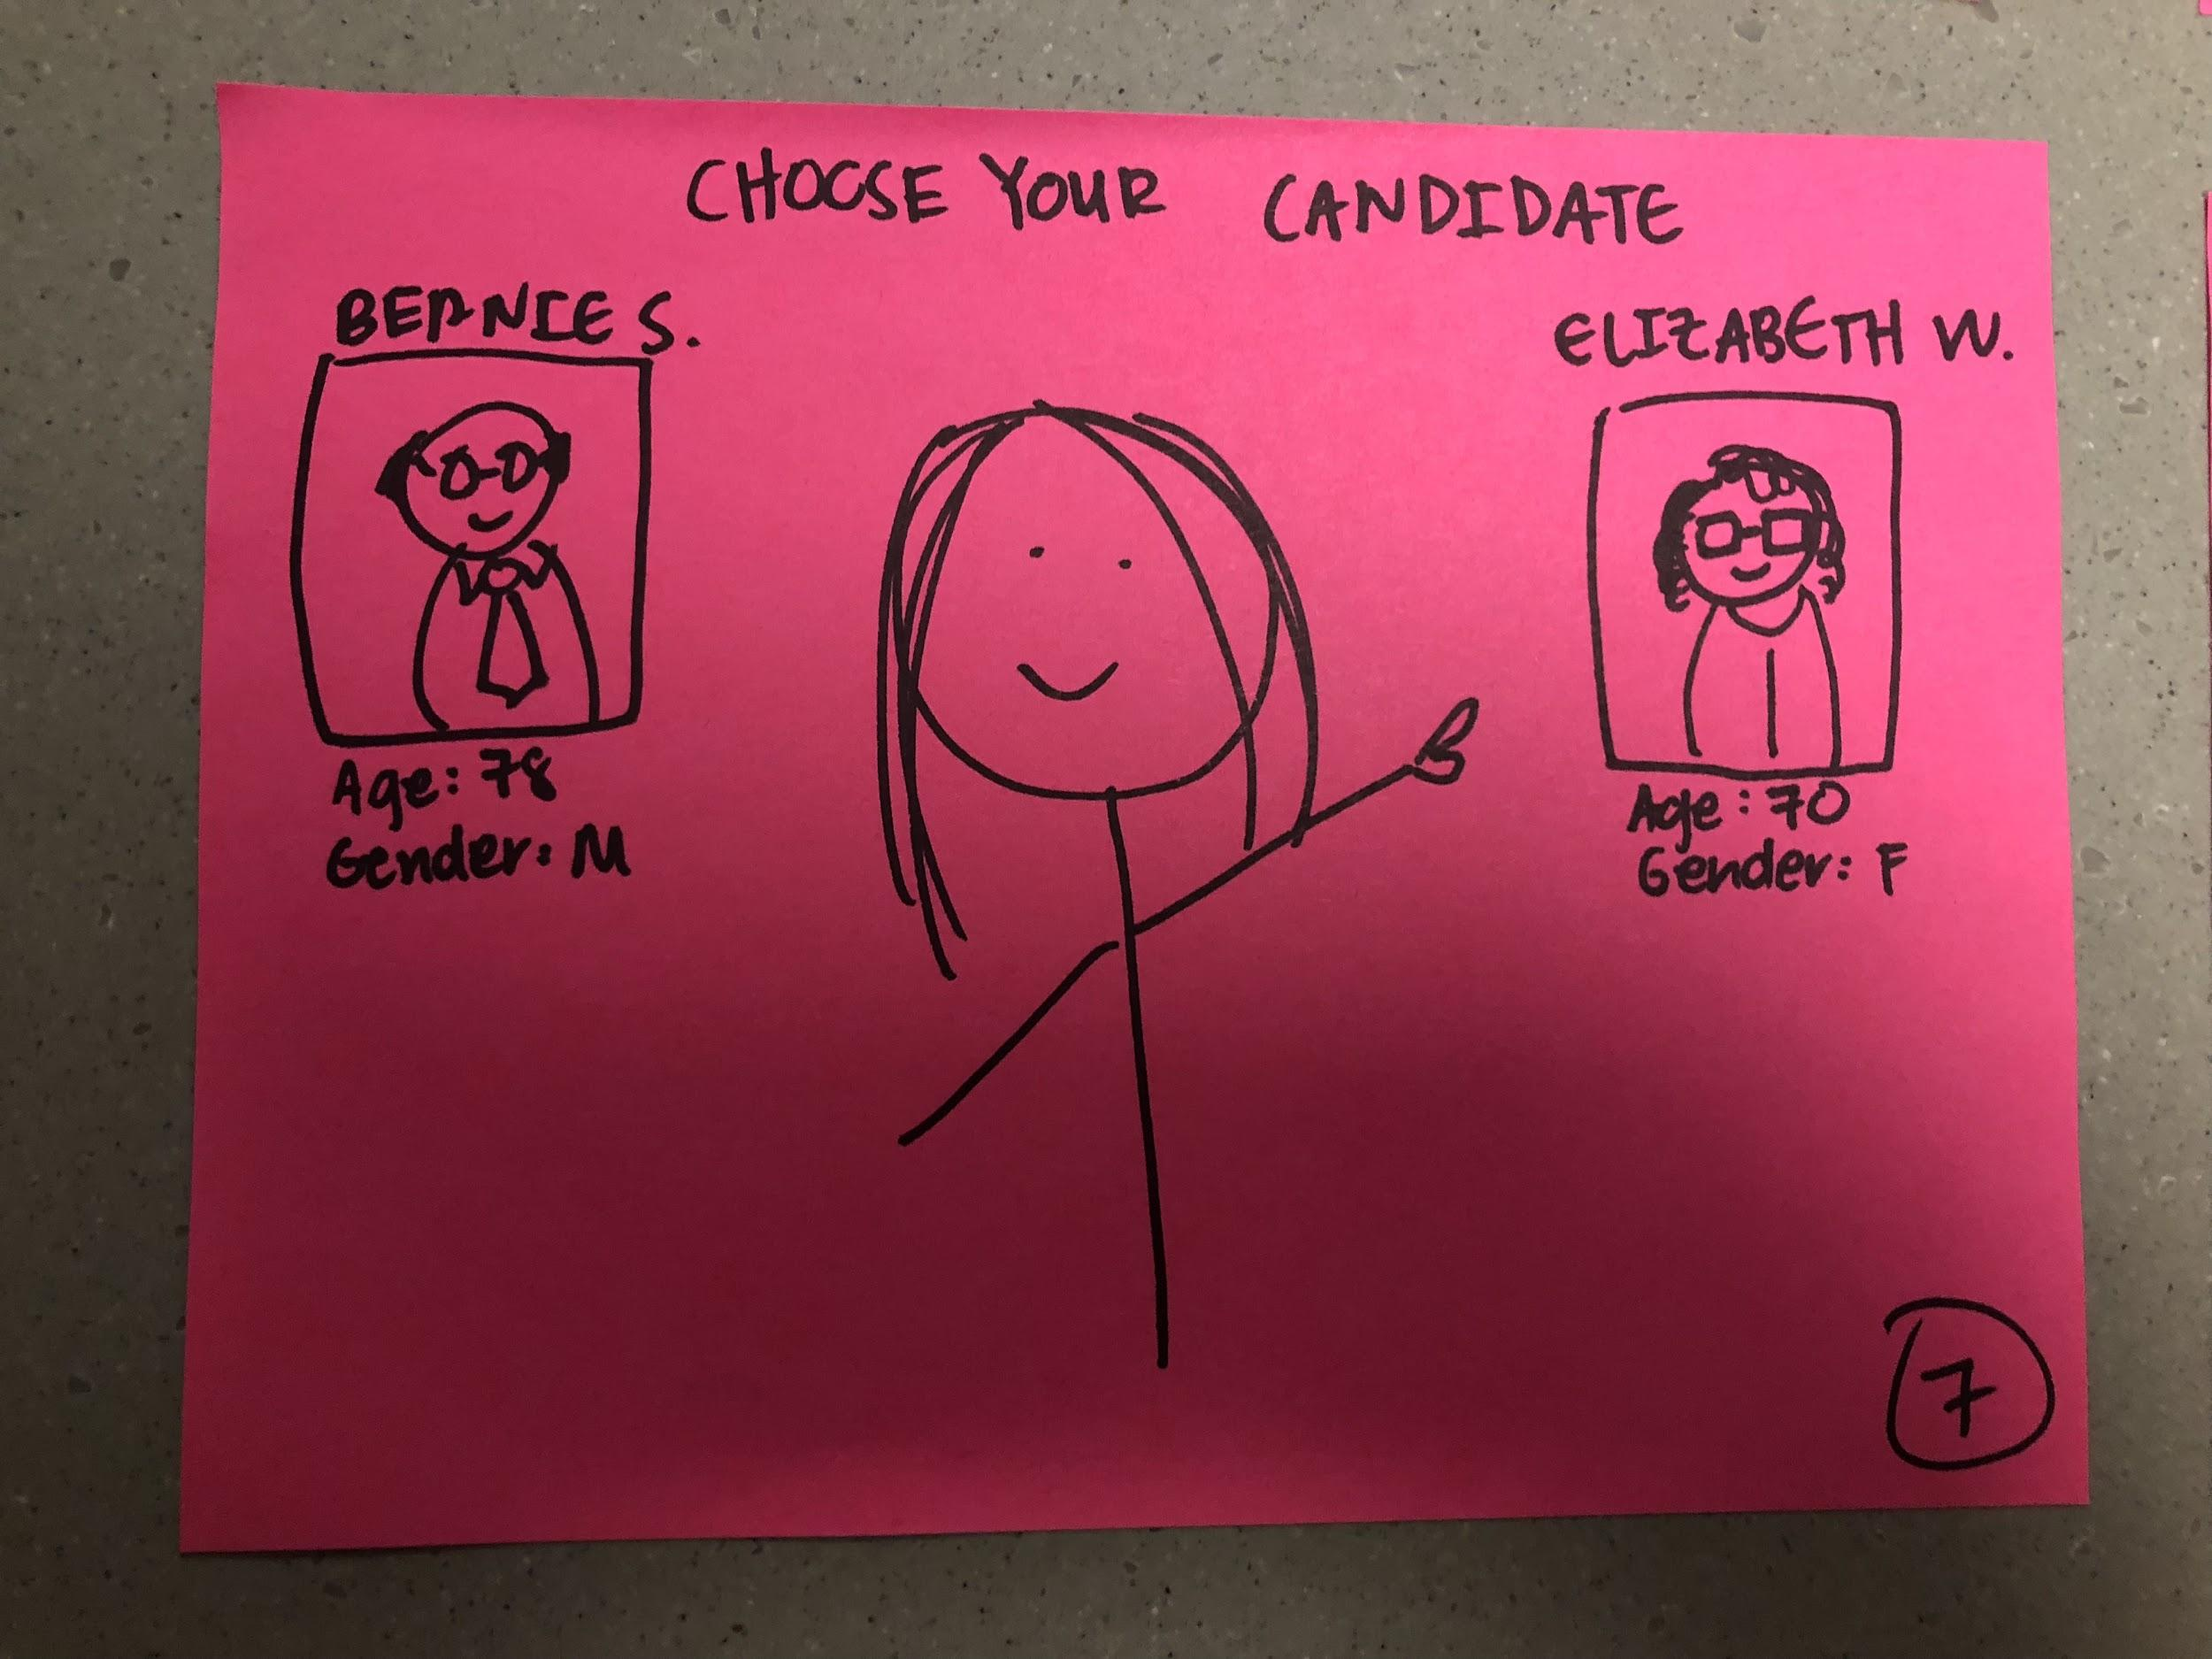 CHOOSE YOUR CANDIDATE
BERNIE S.
Age: 78
Gender: M
ELIZABETH W.
Age: 70
Gender: F
7